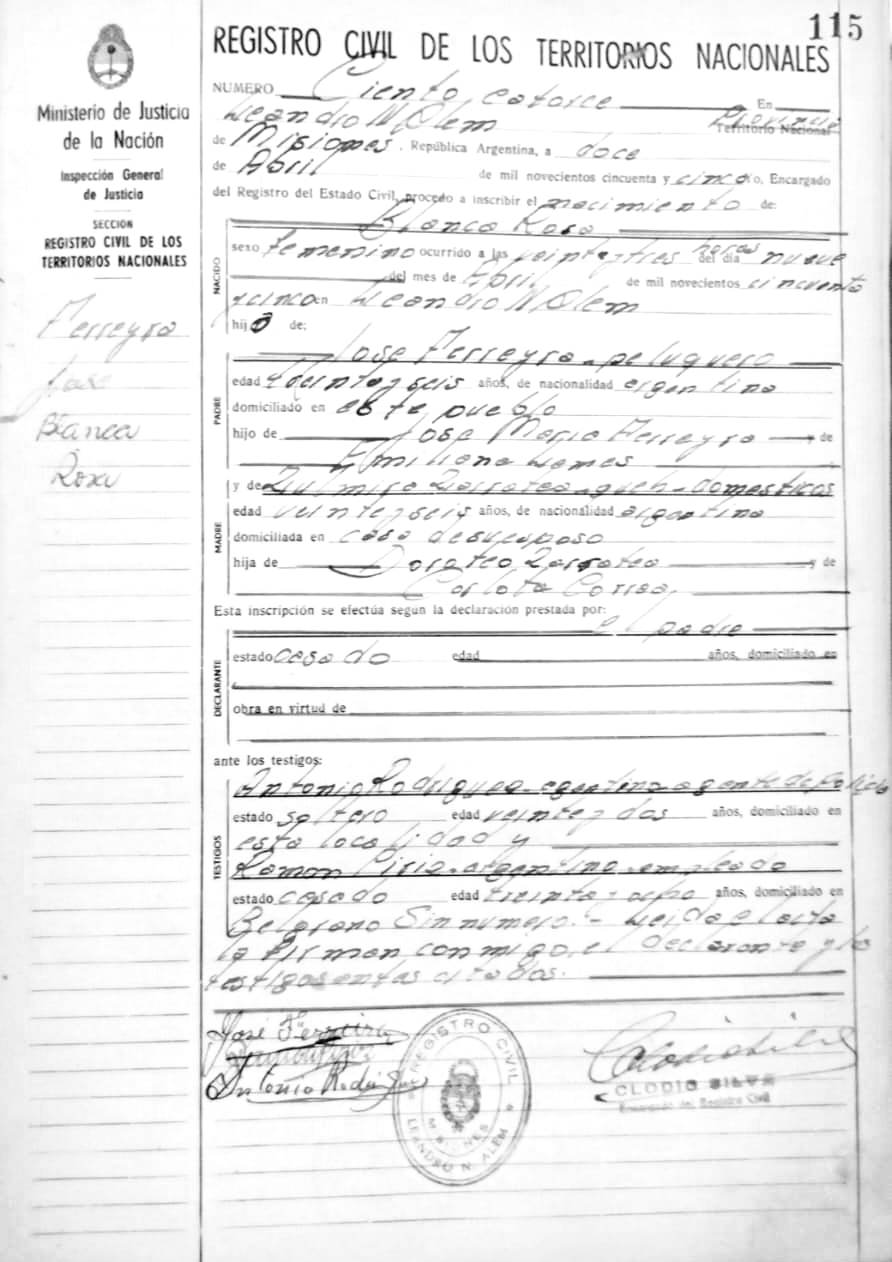 115
REGISTRO CIVIL DE LOS TERRITORIOS NACIONALES
Ministerio de Justicia
de la Nación
Inspección General
de Justicia
SECCION
REGISTRO CIVIL DE LOS
TERRITORIOS NACIONALES
Ferreyra
José
Blanca
Rosa
NUMERO Ciento catorce En
Leandro N Alem Provincia Territorio Nacional
de Misiones, República Argentina, a doce
de Abril de mil novecientos cincuenta y cinco, Encargado
del Registro del Estado Civil, procedo a inscribir el nacimiento de:
NACIDO
Blanca Rosa
sexo femenino ocurrido a las veintitres horas del día nueve
del mes de Abril de mil novecientos cincuenta
y cinco en Leandro N Alem
hija de:
PADRE
José Ferreyra - peluquero
edad veintey seis años, de nacionalidad argentina
domiciliado en este pueblo
hijo de José Maria Ferreyra y de
Emiliana
MADRE
y de - domesticos
edad veinteyseis años, de nacionalidad argentina
domiciliada en casa desu esposo
hija de Doroteo y de
Carlota Correa
Esta inscripción se efectúa según la declaración prestada por:
DECLARANTE
el padre
estado casado edad años, domiciliado en
obra en virtud de
ante los testigos:
TESTIGOS
Antonio Rodriguez - argentino agente de policia
estado soltero edad veintey dos años, domiciliado en
esta localidad y
Ramon argentino - empleado
estado casado edad treinta y ocho años, domiciliado en
Belgrano Sin numero. - Leida el acta
la firman conmigo, el Declarante y los
testigos antes citados.
José Ferreira
Antonio Rodriguez
REGISTRO CIVIL
MISIONES
LEANDRO N. ALEM
Clodio Silva
CLODIO SILVA
Encargado del Registro Civil